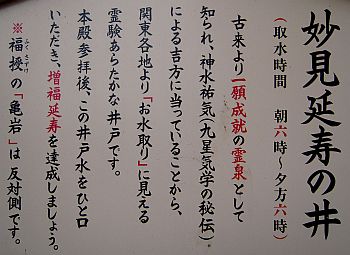 妙見延寿の井
(取水時間 朝六時~夕方六時)
古来より一願成就の霊泉として
知られ、神水祐気(九星気学の秘伝)
による吉方に当っていることから、
関東各地より「お水取り」に見える
霊験あらたかな井戸です。
本殿参拝後、この井戸水をひと口
いただき、増福延寿を達成しましょう。
※福授の「亀岩」は反対側です。